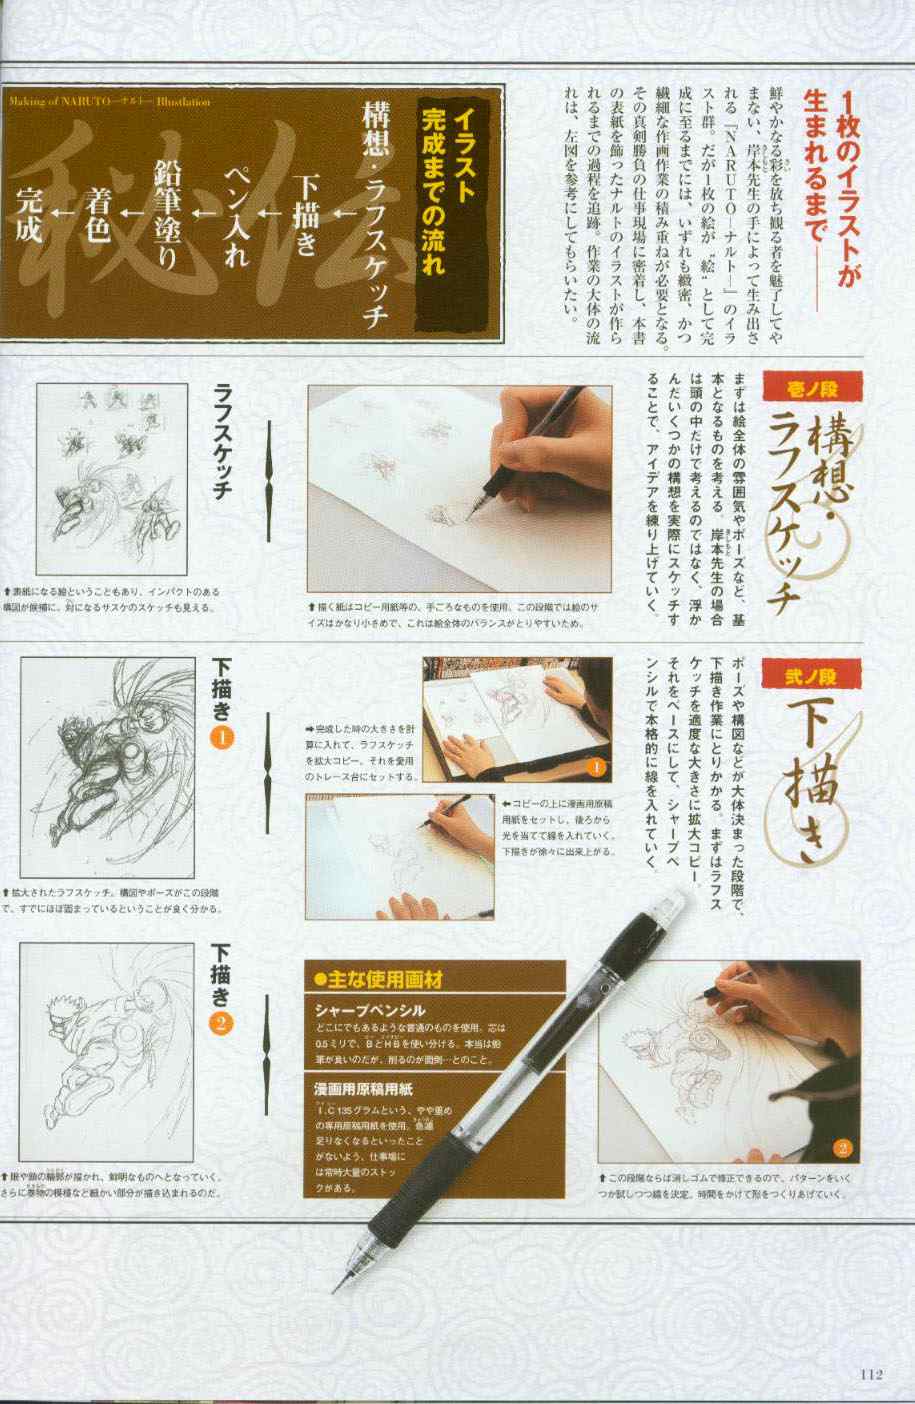 1枚のイラストが
生まれるまで――
鮮やかなる彩を放ち観る者を魅了してや
まない、岸本先生の手によって生み出さ
れる『NARUTO―ナルト―』のイラ
スト群。だが1枚の絵が〝絵〟として完
成に至るまでには、いずれも緻密、かつ
繊細な作画作業の積み重ねが必要となる。
その真剣勝負の仕事現場に密着し、本書
の表紙を飾ったナルトのイラストが作ら
れるまでの過程を追跡。作業の大体の流
れは、左図を参考にしてもらいたい。
Making of NARUTO―ナルト― Illustlation
秘伝
イラスト
完成までの流れ
構想・ラフスケッチ
↓
下描き
↓
ペン入れ
↓
鉛筆塗り
↓
着色
↓
完成
壱ノ段
構想・
ラフスケッチ
まずは絵全体の雰囲気やポーズなど、基
本となるものを考える。岸本先生の場合
は頭の中だけで考えるのではなく、浮か
んだいくつかの構想を実際にスケッチす
ることで、アイデアを練り上げていく。
⬆描く紙はコピー用紙等の、手ごろなものを使用。この段階では絵のサ
イズはかなり小さめで、これは絵全体のバランスがとりやすいため。
ラフスケッチ
⬆表紙になる絵ということもあり、インパクトのある
構図が候補に。対になるサスケのスケッチも見える。
弐ノ段
下描き
ポーズや構図などが大体決まった段階で、
下描き作業にとりかかる。まずはラフス
ケッチを適度な大きさに拡大コピー。
それをベースにして、シャープペ
ンシルで本格的に線を入れていく。
1
➡完成した時の大きさを計
算に入れて、ラフスケッチ
を拡大コピー、それを愛用
のトレース台にセットする。
⬅コピーの上に漫画用原稿
用紙をセットし、後ろから
光を当てて線を入れていく。
下描きが徐々に出来上がる。
下描き1
⬆拡大されたラフスケッチ。構図やポーズがこの段階
で、すでにほぼ固まっているということが良く分かる。
2
⬆この段階ならば消しゴムで修正できるので、パターンをいく
つか試しつつ線を決定。時間をかけて形をつくりあげていく。
●主な使用画材
シャープペンシル
どこにでもあるような普通のものを使用。芯は
0.5ミリで、BとHBを使い分ける。本当は鉛
筆が良いのだが、削るのが面倒…とのこと。
漫画用原稿用紙
I.C 135グラムという、やや重め
の専用原稿用紙を使用。急遽
足りなくなるといったこと
がないよう、仕事場に
は常時大量のストッ
クがある。
下描き2
⬆眼や顔の輪郭が描かれ、鮮明なものへとなっていく。
さらに巻物の模様など細かい部分が描き込まれるのだ。
112